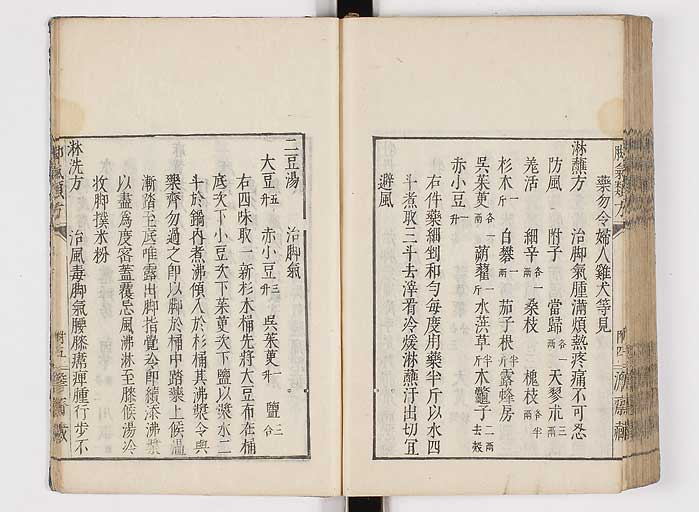 藥勿令婦人雞犬等見
淋蘸方　治脚氣腫滿煩熱疼痛不可忍
防風　附子　當歸各一兩　天蓼木三兩
羌活　細辛各一兩　桑枝三兩　槐枝各半兩
杉木一斤　白礬一兩　茄子根一斤　露蜂房半兩
呉茱萸一兩　蒴藋一斤　水葒草半斤　木鼈子二兩去殻
赤小豆一升
右件藥細剉和勻每度用藥半斤以水四
斗煮取三斗去滓看冷煖淋蘸汗出切宜
避風
二豆湯　治脚氣
大豆五升　赤小豆三升　呉茱萸一升　鹽三合
右四味取一新杉木桶先將大豆布在桶
底次下小豆次下茱萸次下鹽以漿水二
斗於鍋內煮沸傾入於杉桶其沸漿令與
藥齊勿過之即以脚於桶中踏藥上候溫
漸踏至底唯露出脚指覺冷即續添沸漿
以盡為度密蓋覆忌風沸淋至膝候湯冷
收脚撲米粉
淋洗方　治風毒脚氣腰膝㾏癉腫行步不
脚氣類方
附四
濟衆藏
脚氣類方
附五